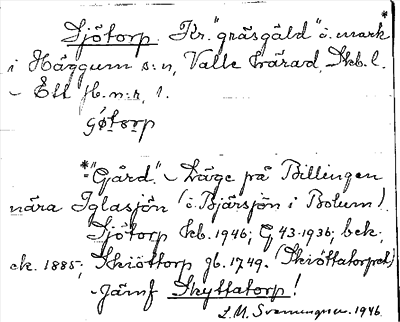 Sjötorp. Kr. "gräsgäld" o. mark*
i Häggum s:n, Valle härad, Skb. l.
– Ett jb.n:r, 1.
*"Gård". – Läge på Billingen
nära Iglasjön (o. Bjärsjön i Bolum).
Sjötorp kb. 1946; G 43-1936; bek.
ek. 1885; Skiöttorp gb. 1749. (Skiöttatorpet)
– Jämf Skyttatorp!
L.M. Svennungsson. 1946.